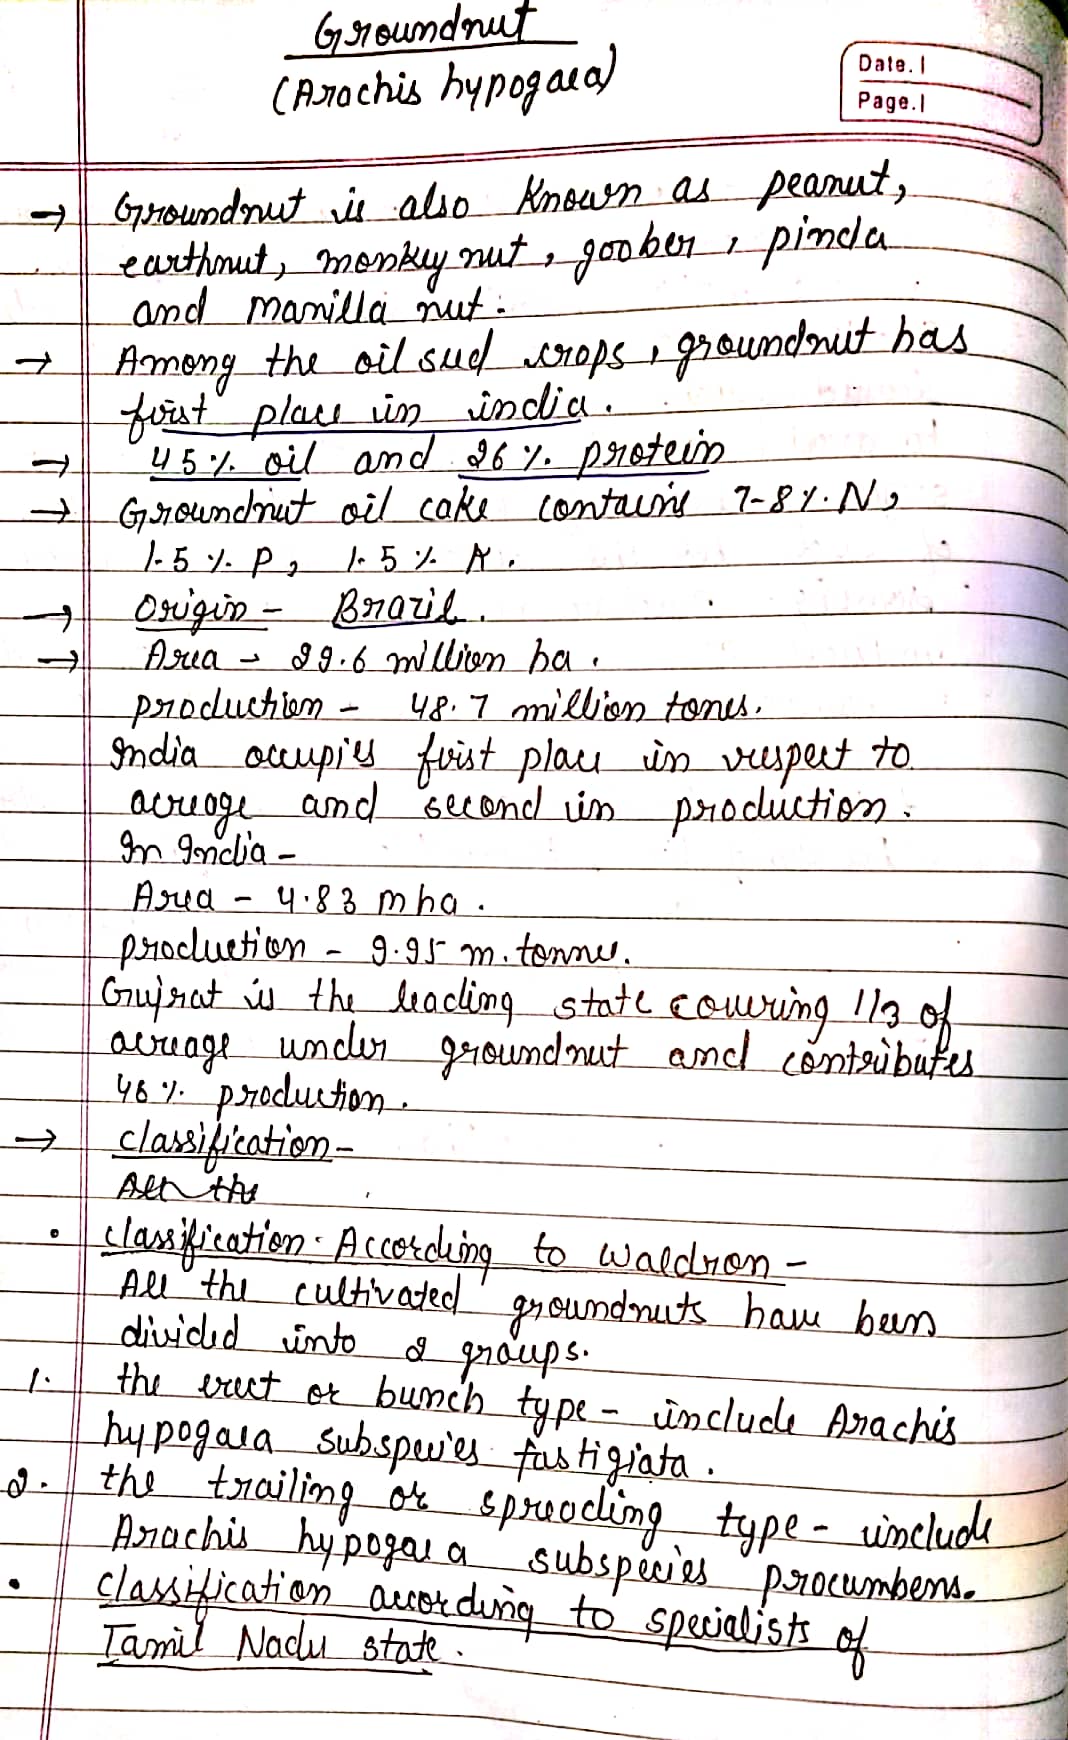 Groundnut
(Arachis hypogaea)
Date.
Page.
→ Groundnut is also known as peanut,
earthnut, monkey nut, goober, pinda
and Manilla nut.
→ Among the oil seed crops, groundnut has
first place in india.
→ 45% oil and 26% protein
→ Groundnut oil cake contains 7-8% N,
1.5% P, 1.5% K.
→ Origin - Brazil.
→ Area - 29.6 million ha.
production - 48.7 million tones.
India occupies first place in respect to
acreage and second in production.
In India -
Area - 4.83 mha.
production - 9.95 m. tonnes.
Gujrat is the leading state covering 1/3 of
acreage under groundnut and contributes
46% production.
→ classification -
All the
• classification According to Waldron -
All the cultivated groundnuts have been
divided into 2 groups.
1. the erect or bunch type - include Arachis
hypogaea subspecies fastigiata.
2. the trailing or spreading type - include
Arachis hypogaea subspecies procumbens.
• classification according to specialists of
Tamil Nadu state.